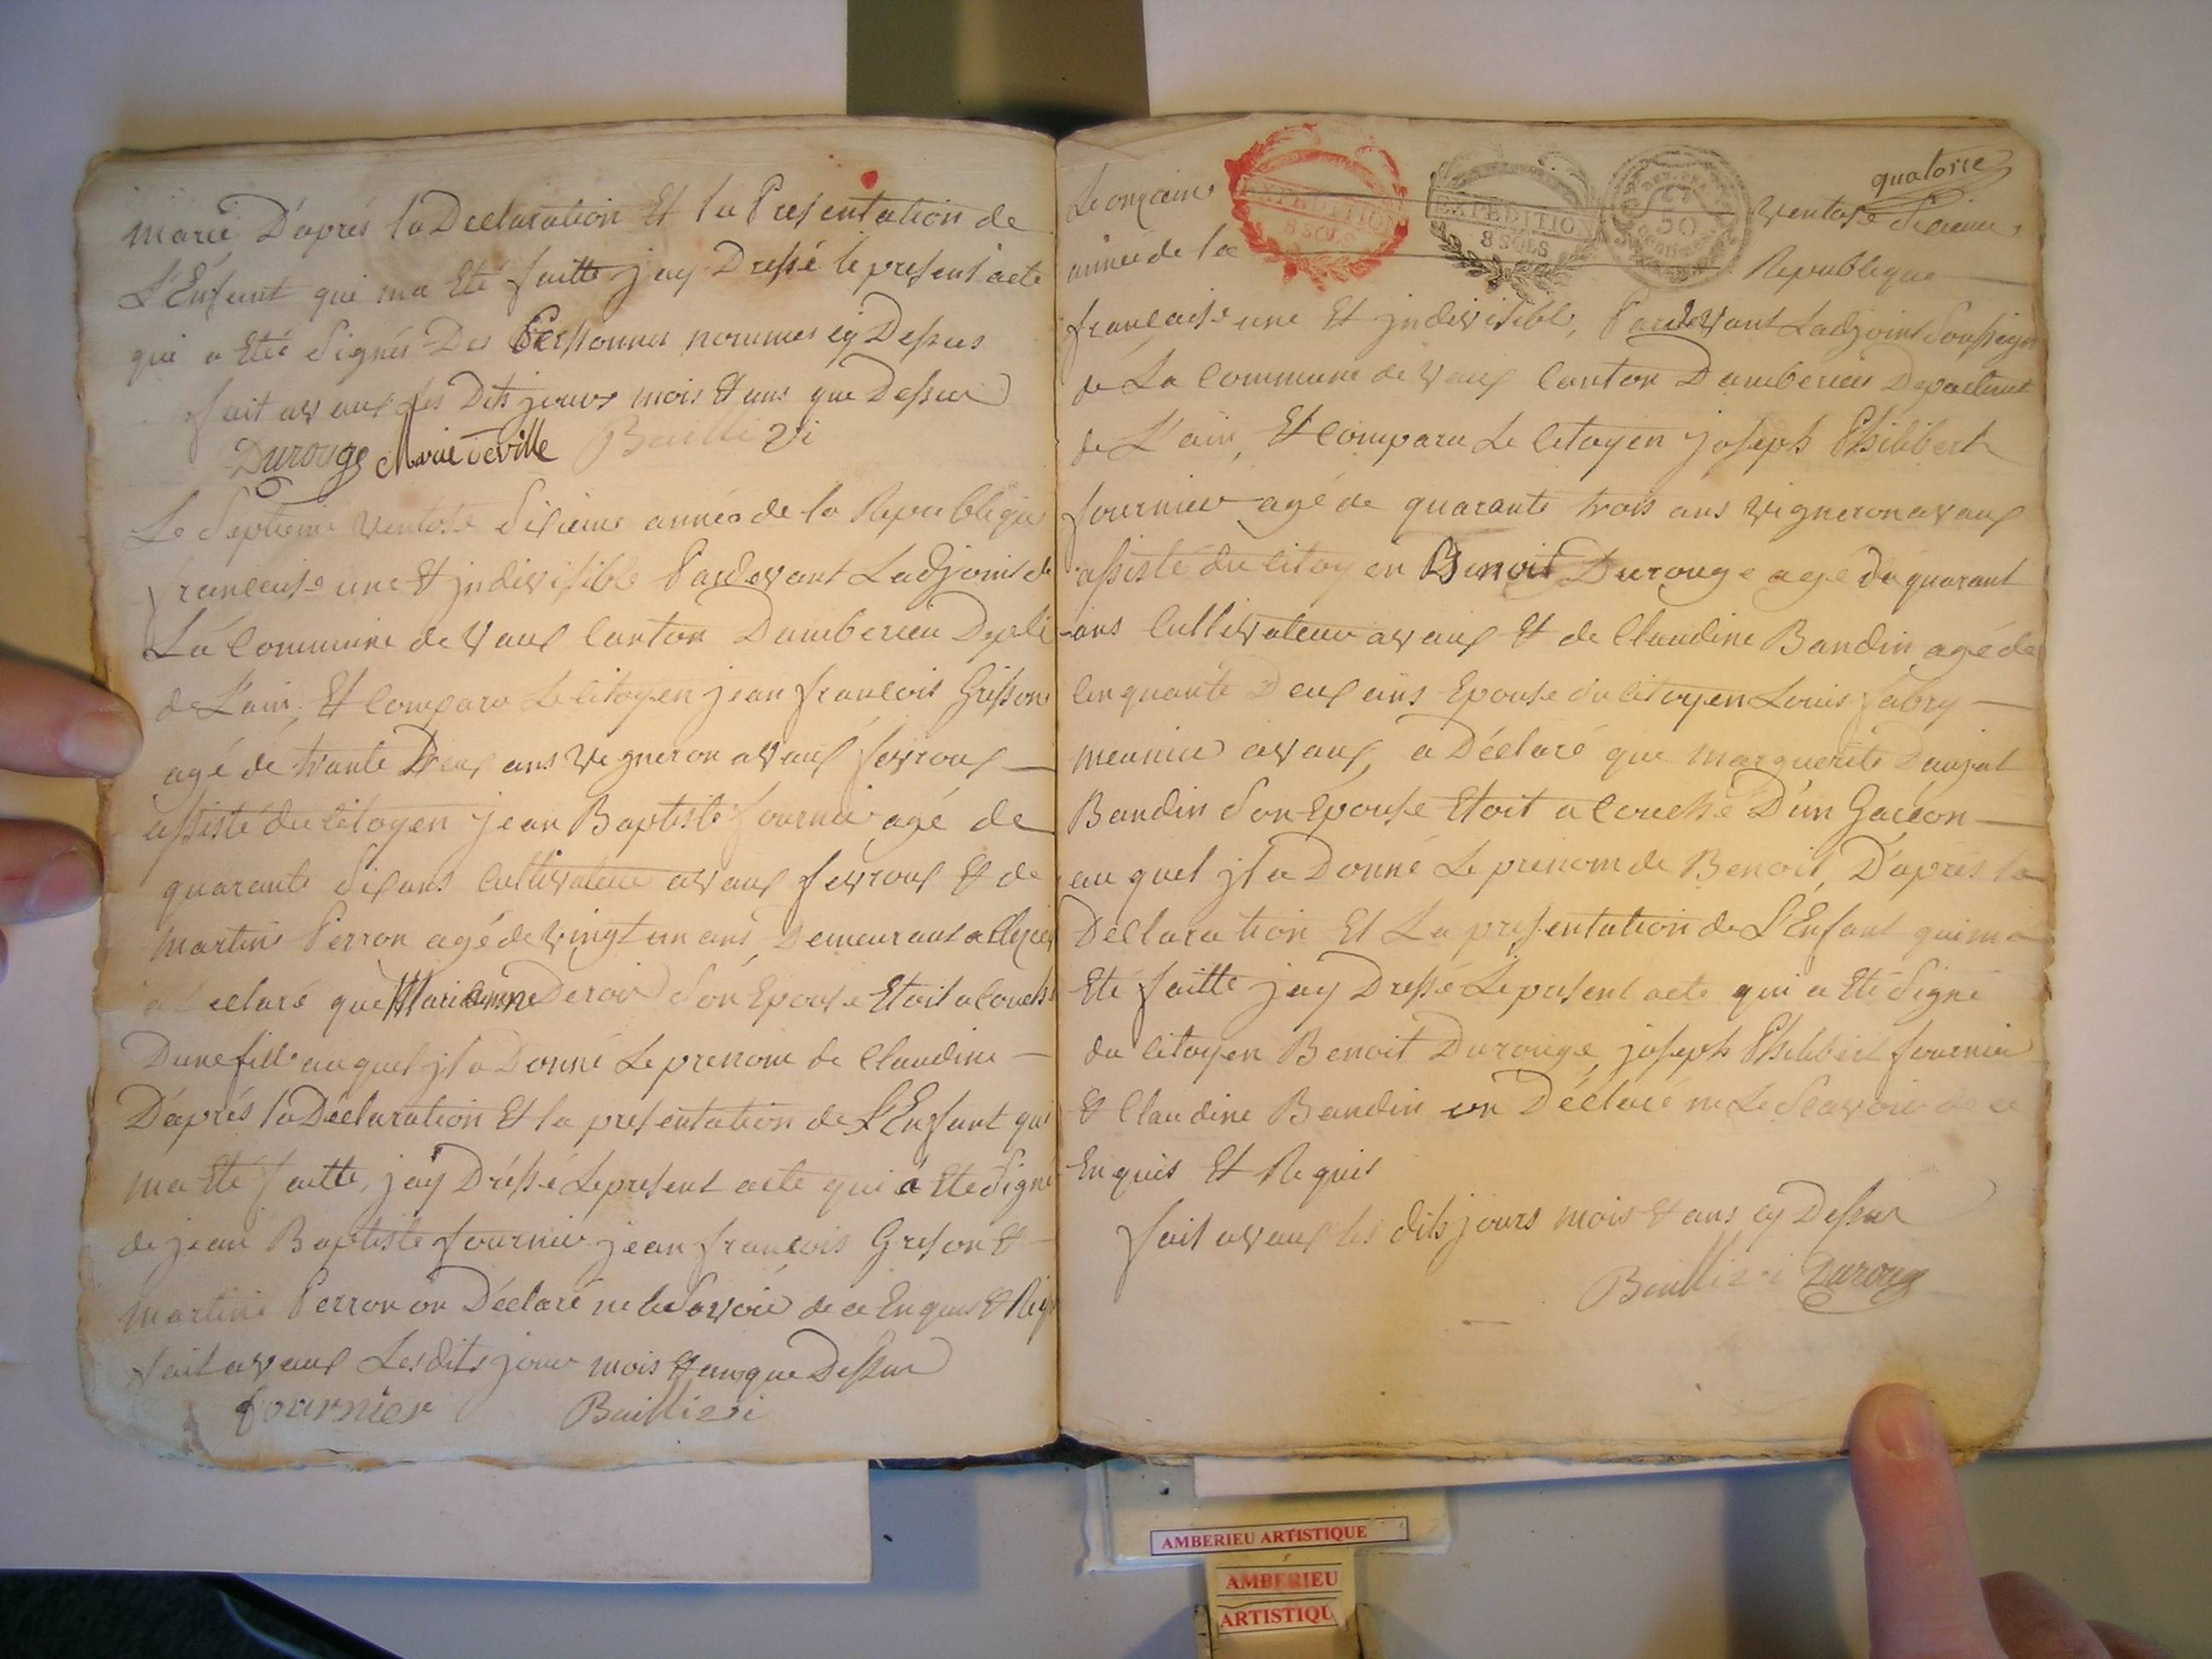 marié D'après la Declaration Et la Presentation de
L'Enfant qui ma Eté faitte jay Dressé le present acte
qui a Eté Signés Des Perssonnes nommes cy Dessus
fait avaux les Dits jours mois Et ans que Dessus
Durouge Marie deville Baillivi
Le Septieme ventose Sixieme année de la Republique
francaise une Et jndivisible Pardevant Ladjoint de
La Commune de Vaux Canton Damberieu
de L'ain, Et Comparu Le Citoyen jean francois Grisson
agé de trante Deux ans vigneron avaux fevroux
assisté du Citoyen jean Baptiste fournier agé de
quarante Six ans Cultivateur avaux fevroux Et de
Martine Perron agé de vingt un ans Demeurant a
a Declaré que Marianne Son Epouse Etoit acouché
Dune fille auquel jl a Donné Le prenom de Claudine
D'après la Déclaration Et la presentation de L'Enfant qui
ma Eté faitte, jay Dréssé Lepresent acte qui a Eté Signé
de jean Baptiste fournier jean francois Grison Et
Martine Perron on Déclaré ne le Savoir de ce Enquis Et
fait avaux Les dits jour mois Et ans que Dessus
fournier Baillivi
quatorze
Le onzieme ventose Sixieme
EXPEDITION 8 SOLS
EXPEDITION 8 SOLS
50 centimes
année de la Republique
francaise une Et jndivisible, Pardevant Ladjoint Soussigné
de La Commune de Vaux Canton Damberieu Departement
de L'ain, Et Comparu Le Citoyen joseph Philibert
fournier agé de quarante trois ans vigneron avaux
assisté du Citoyen Benoit Durouge agé de quarant
ans Cultivateur avaux Et de Claudine Bandin agé de
Cinquante Deux ans Epouse du Citoyen Louis fabry
meunier avaux, a Déclaré que Marguerite
Bandin Son Epouse Etoit acouché D'un Garcon
auquel jl a Donné Le prenom de Benoit, D'après la
Déclaration Et La presentation de L'Enfant qui ma
Eté faitte jay Dressé Le present acte qui a Eté Signé
du Citoyen Benoit Durouge, joseph Philibert fournier
Et Claudine Bandin on Déclaré ne Le Scavoir de ce
Enquis Et Requis
fait avaux les dits jours mois Et ans cy Dessus
Baillivi Durouge
AMBERIEU ARTISTIQUE
AMBERIEU
ARTISTIQU